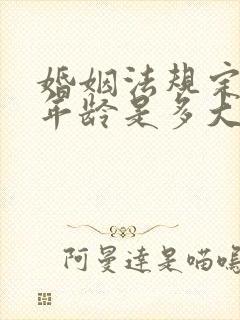 婚姻法规定
年龄是多大
阿曼達是喵嗚